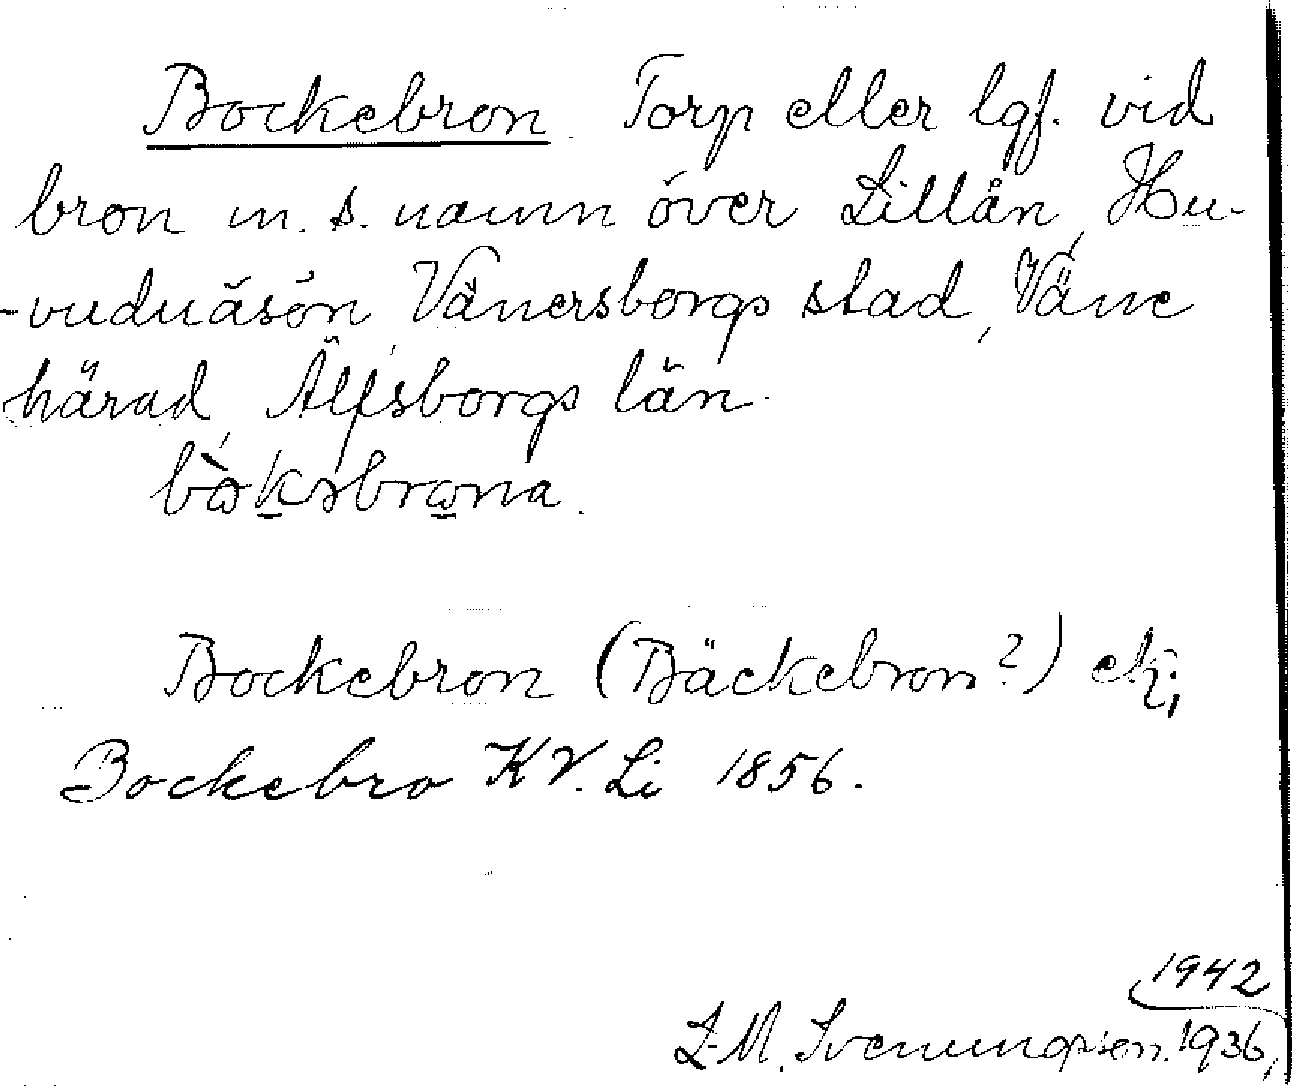 Bockebron. Torp eller lgf. vid
bron m. s. namn över Lillån, Hu-
-vuduäsön, Vänersborgs stad, Väne
härad, Älfsborgs län.
Bockebron (Bäckebron?) ek;
Bockebro KV. Li 1856.
1942
L-M. Svenungsson. 1936,